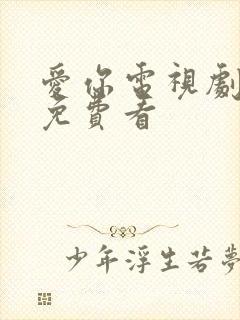 愛你電視劇
免費看
少年浮生若夢